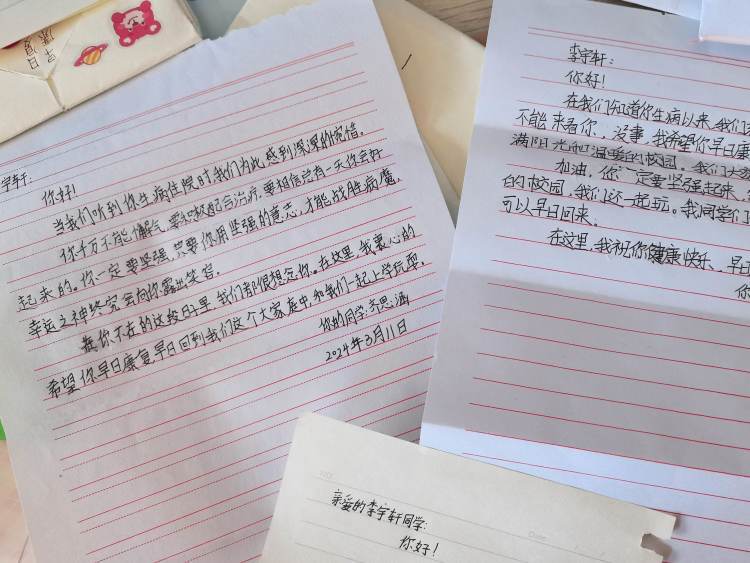 早日
康复
宇轩:
你好!
当我们听到你生病住院时我们为此感到深深的惋惜。
你千万不能懈气,要积极配合治疗,要相信总有一天你会好
起来的。你一定要坚强,只要你用坚强的意志,才能战胜病魔,
幸运之神终究会向你露出笑容。
在这里,我衷心的
希望你早日康复早日回到我们这个大家庭中和我们一起上学玩耍。
你的同学:齐思涵
2024年3月11日
李宇轩:
你好!
在我们知道你生病以来,我们
不能来看你,没事,我希望你早日康
满阳光和温暖的校园,我们大家
加油,你一定要坚强起来,
的校园,我们还一起玩。我同学们
可以早日回来。
在这里,我祝你健康快乐,早日
你
亲爱的李宇轩同学:
你好!